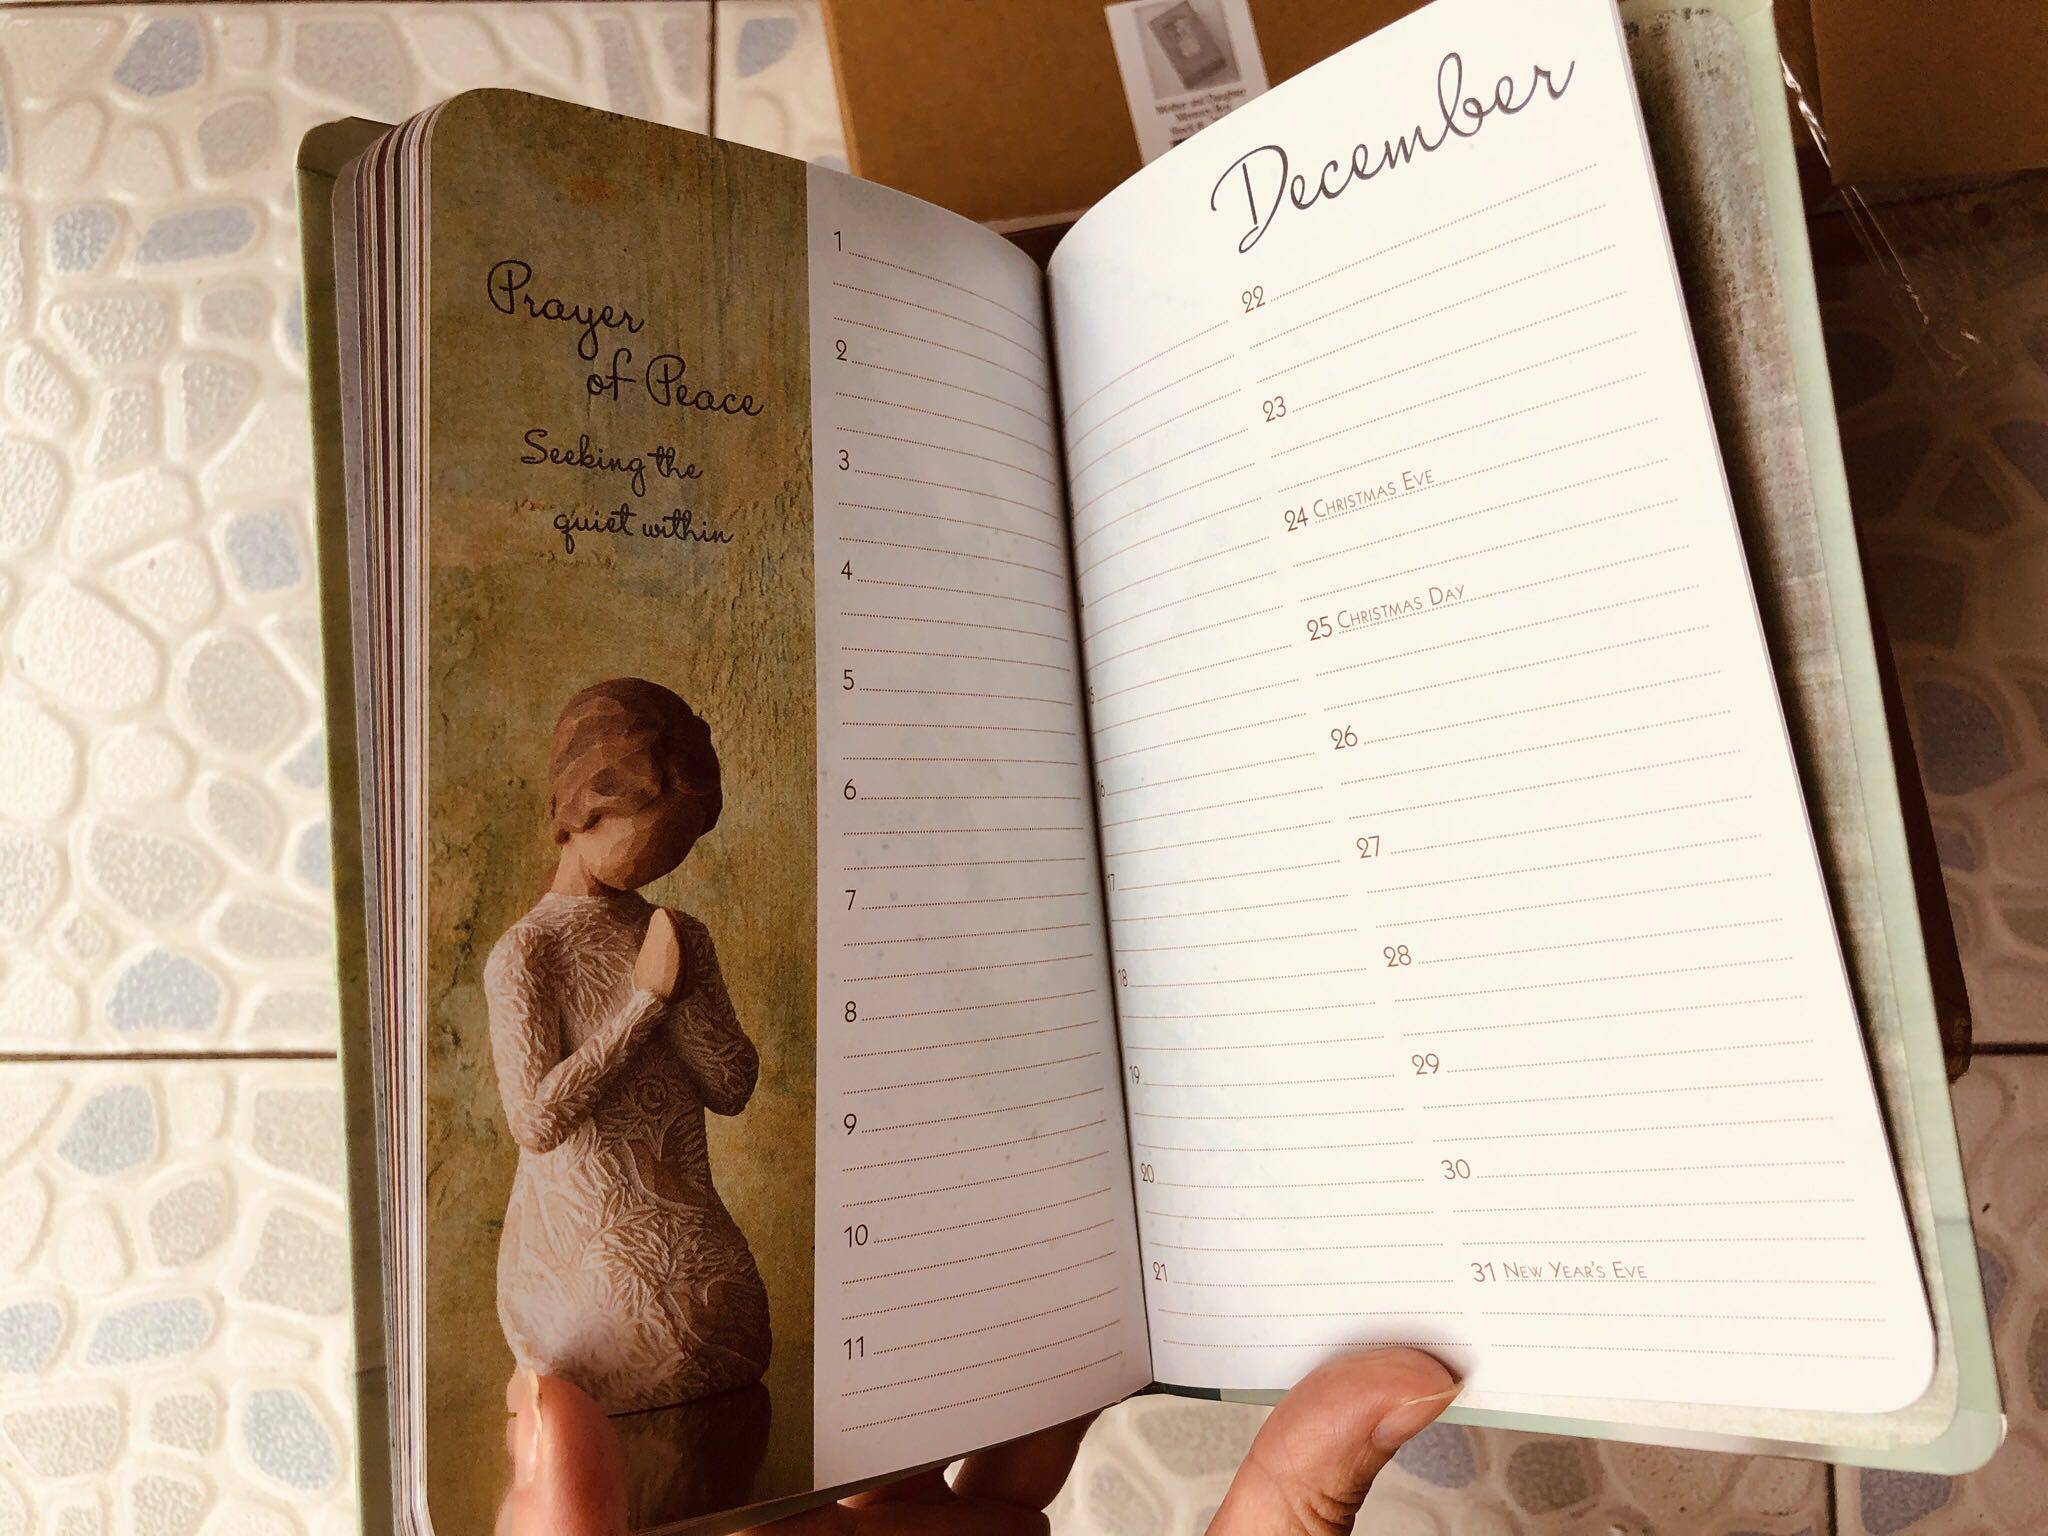 Mother and Daughter
Memory Box
Prayer
of Peace
Seeking the
quiet within
1
2
3
4
5
6
7
8
9
10
11
December
16
17
18
19
20
21
22
23
24 CHRISTMAS EVE
25 CHRISTMAS DAY
26
27
28
29
30
31 NEW YEAR'S EVE